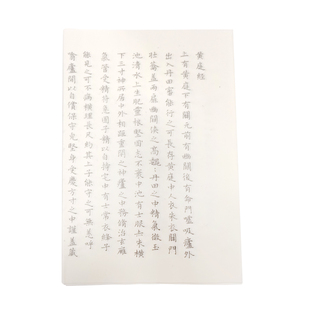 黃庭經
上有黃庭下有關元前有幽闕後有命門噓吸廬外
出入丹田審能行之可長存黃庭中人衣朱衣關門
壯籥蓋兩扉幽闕俠之高巍丹田之中精氣微玉
池清水上生肥靈根堅固志不衰中池有士服赤朱橫
下三寸神所居中外相距重閉之神廬之中務脩治玄膺
氣管受精符急固子精以自持宅中有士常衣絳子
能見之可不病橫理長尺約其上子能守之可無恙呼
翕廬間以自償保守完堅身受慶方寸之中謹蓋藏